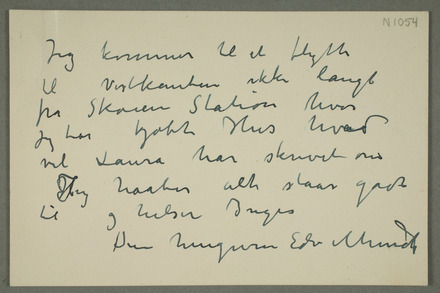 N 1054
Jeg kommer til at flytte
til Vestkanten ikke langt
fra Skøien Station hvor
jeg har kjøbt Hus hvad
vel Laura har skrevet om
Jeg haaber alt staar godt
til og hilser Inger
Din hengivne Edv Munch